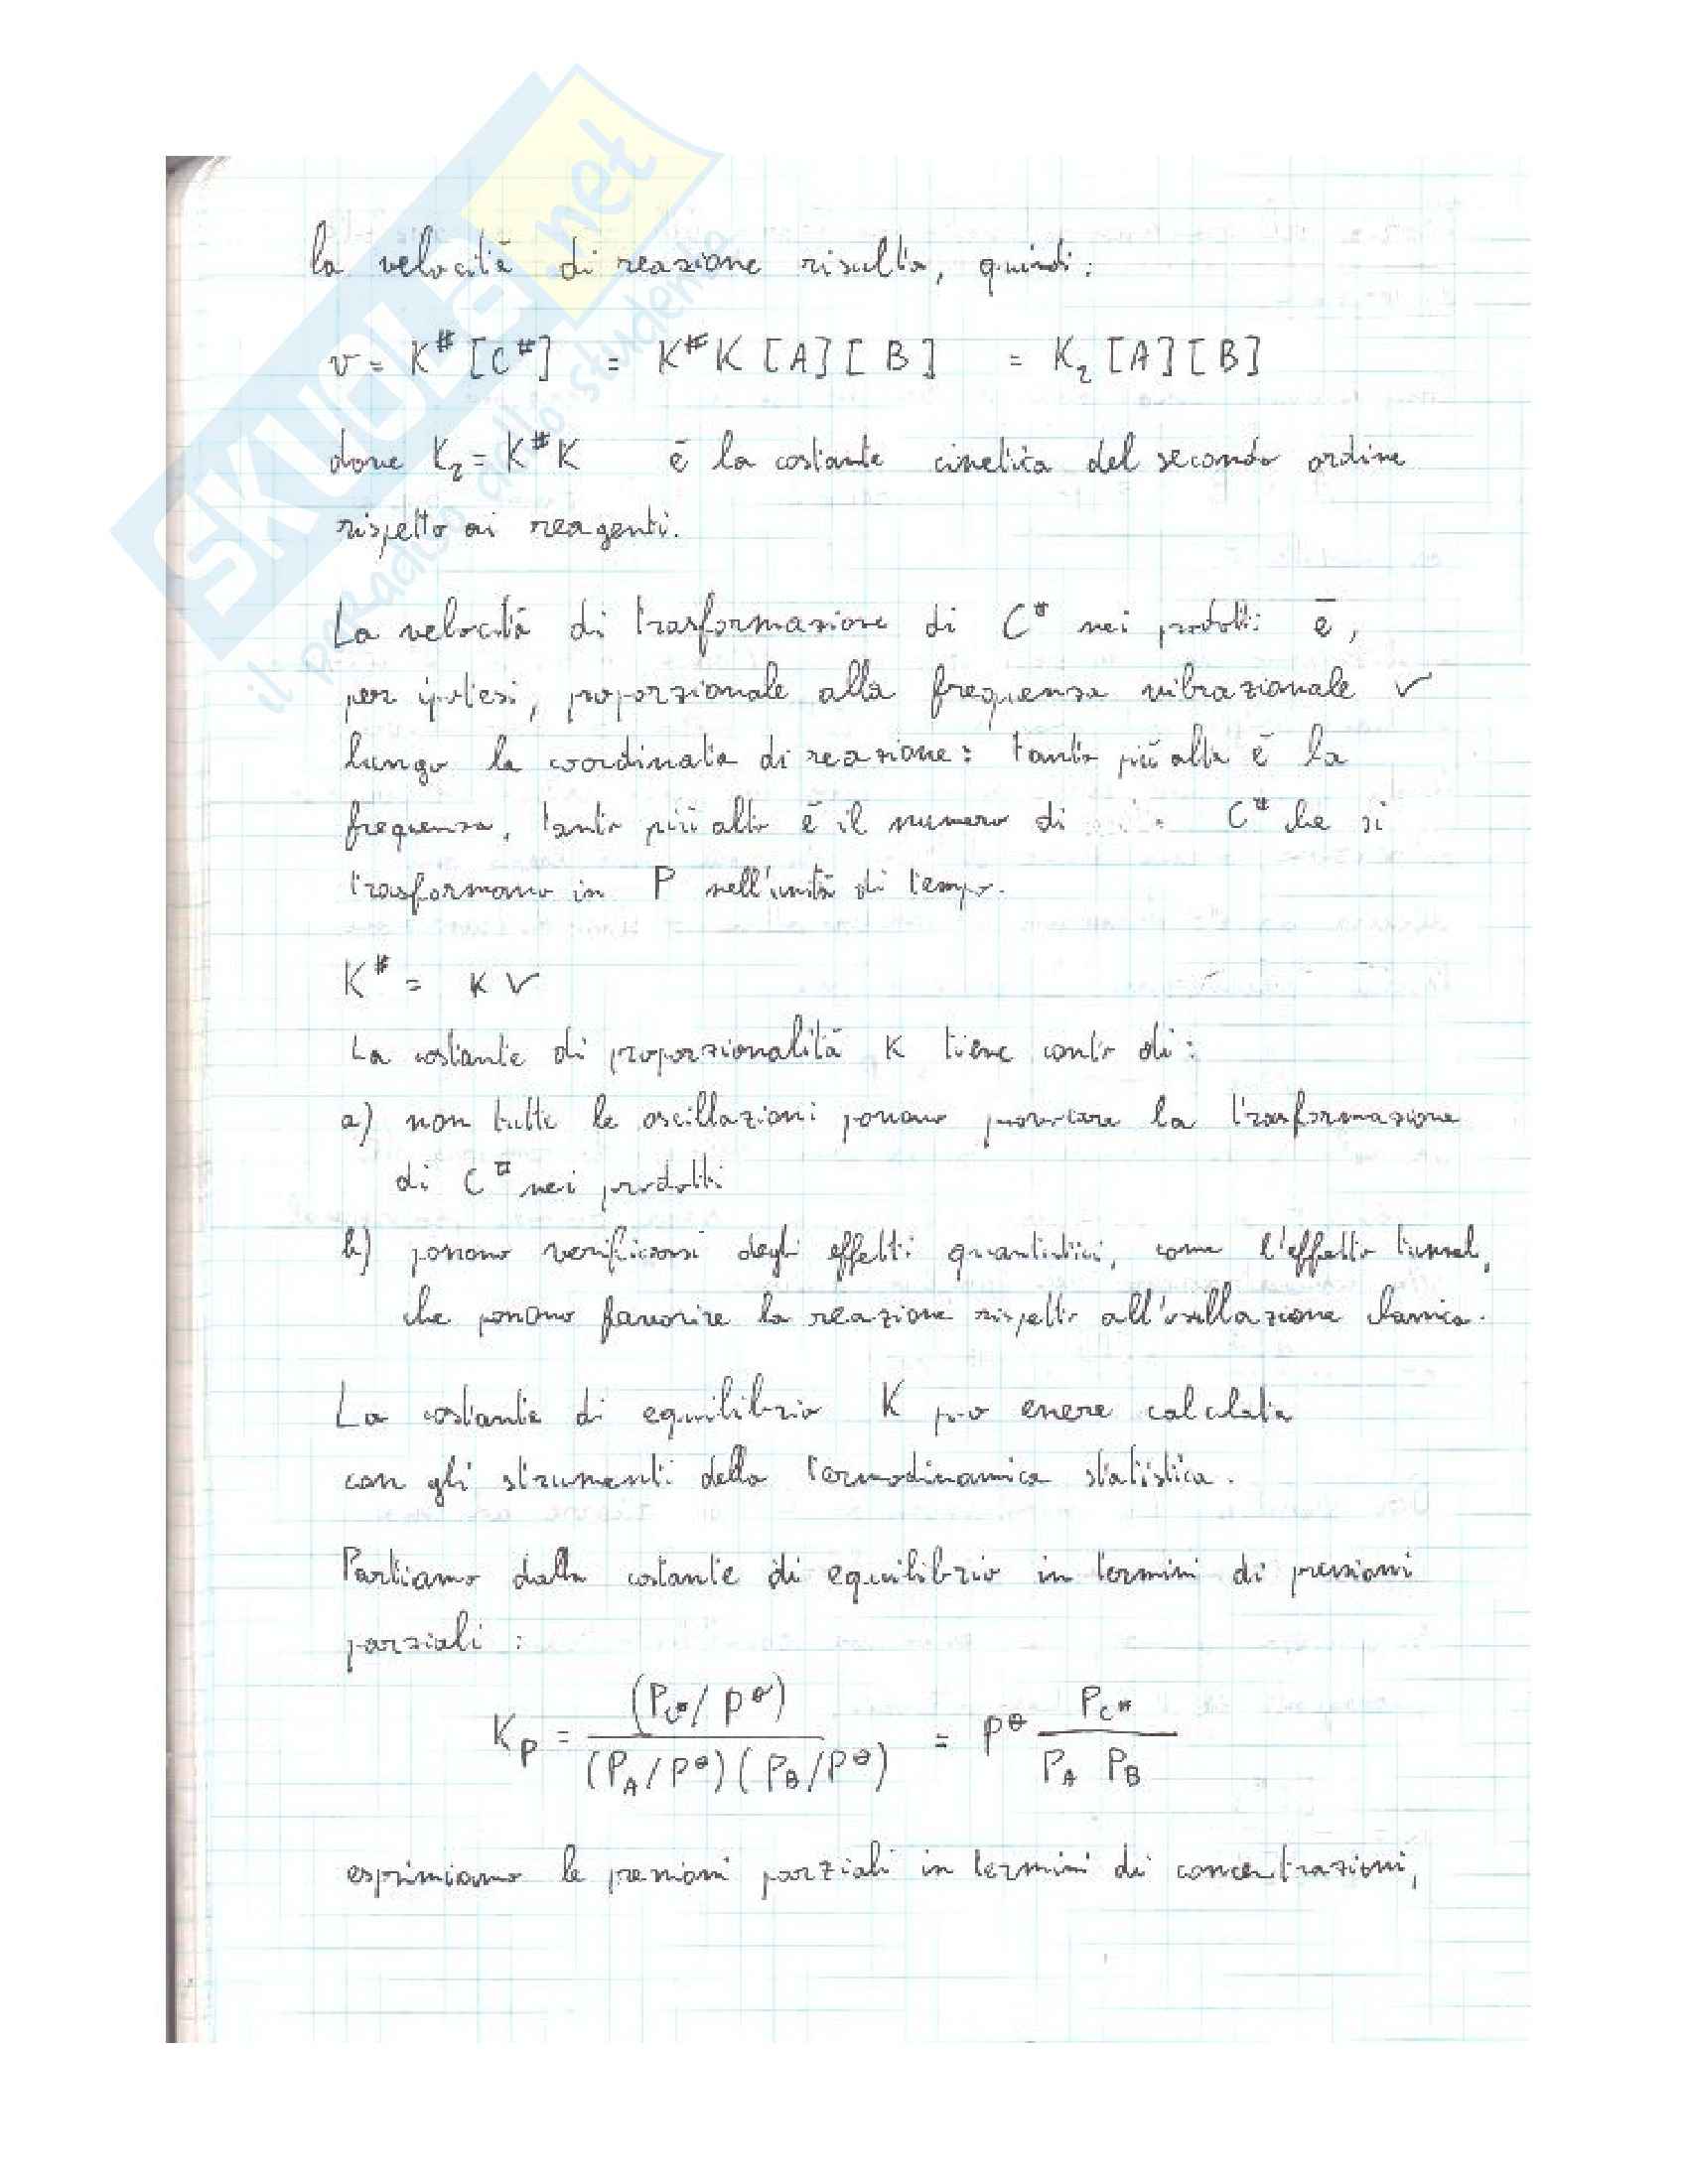 SKUOLA.net
il paradiso dello studente
la velocità di reazione risulta, quindi:
v = K# [C#] = K# K [A][B] = K2 [A][B]
dove K2 = K# K è la costante cinetica del secondo ordine
rispetto ai reagenti.
La velocità di trasformazione di C# nei prodotti è,
per ipotesi, proporzionale alla frequenza vibrazionale ν
lungo la coordinata di reazione: tanto più alta è la
frequenza, tanto più alto è il numero di C# che si
trasformano in P nell'unità di tempo.
K# = κ ν
La costante di proporzionalità κ tiene conto di:
a) non tutte le oscillazioni possono provocare la trasformazione
di C# nei prodotti
b) possono verificarsi degli effetti quantistici, come l'effetto tunnel,
che possono favorire la reazione rispetto all'oscillazione classica.
La costante di equilibrio K può essere calcolata
con gli strumenti della termodinamica statistica.
Partiamo dalla costante di equilibrio in termini di pressioni
parziali:
Kp = (PC#/P⊖) / (PA/P⊖)(PB/P⊖) = P⊖ PC# / PA PB
esprimiamo le pressioni parziali in termini di concentrazioni,